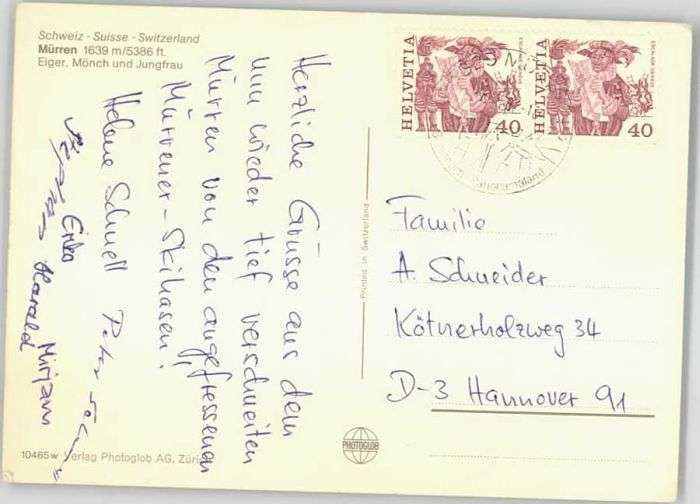 Schweiz - Suisse - Switzerland
Mürren 1639 m/5386 ft.
Eiger, Mönch und Jungfrau
Herzliche Grüsse aus dem
nun wieder tief verschneiten
Mürren von den angefressenen
Mürrener-Skihasen!
Helene Schnell Peter
Erika
Harald Mirjam
10465w Verlag Photoglob AG, Zürich
Printed in Switzerland
PHOTOGLOB
HELVETIA
40
HELVETIA
40
Familie
A. Schneider
Kötnerholzweg 34
D-3 Hannover 91